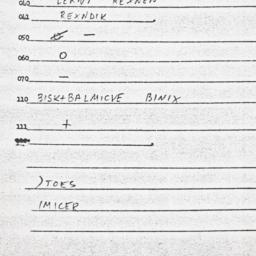 040 LERDT REXNEN
042 REXNDIK
050 —
060 O
070 —
110 BISK+BALMICVE BINIX
111 +
)TOES
IMICER